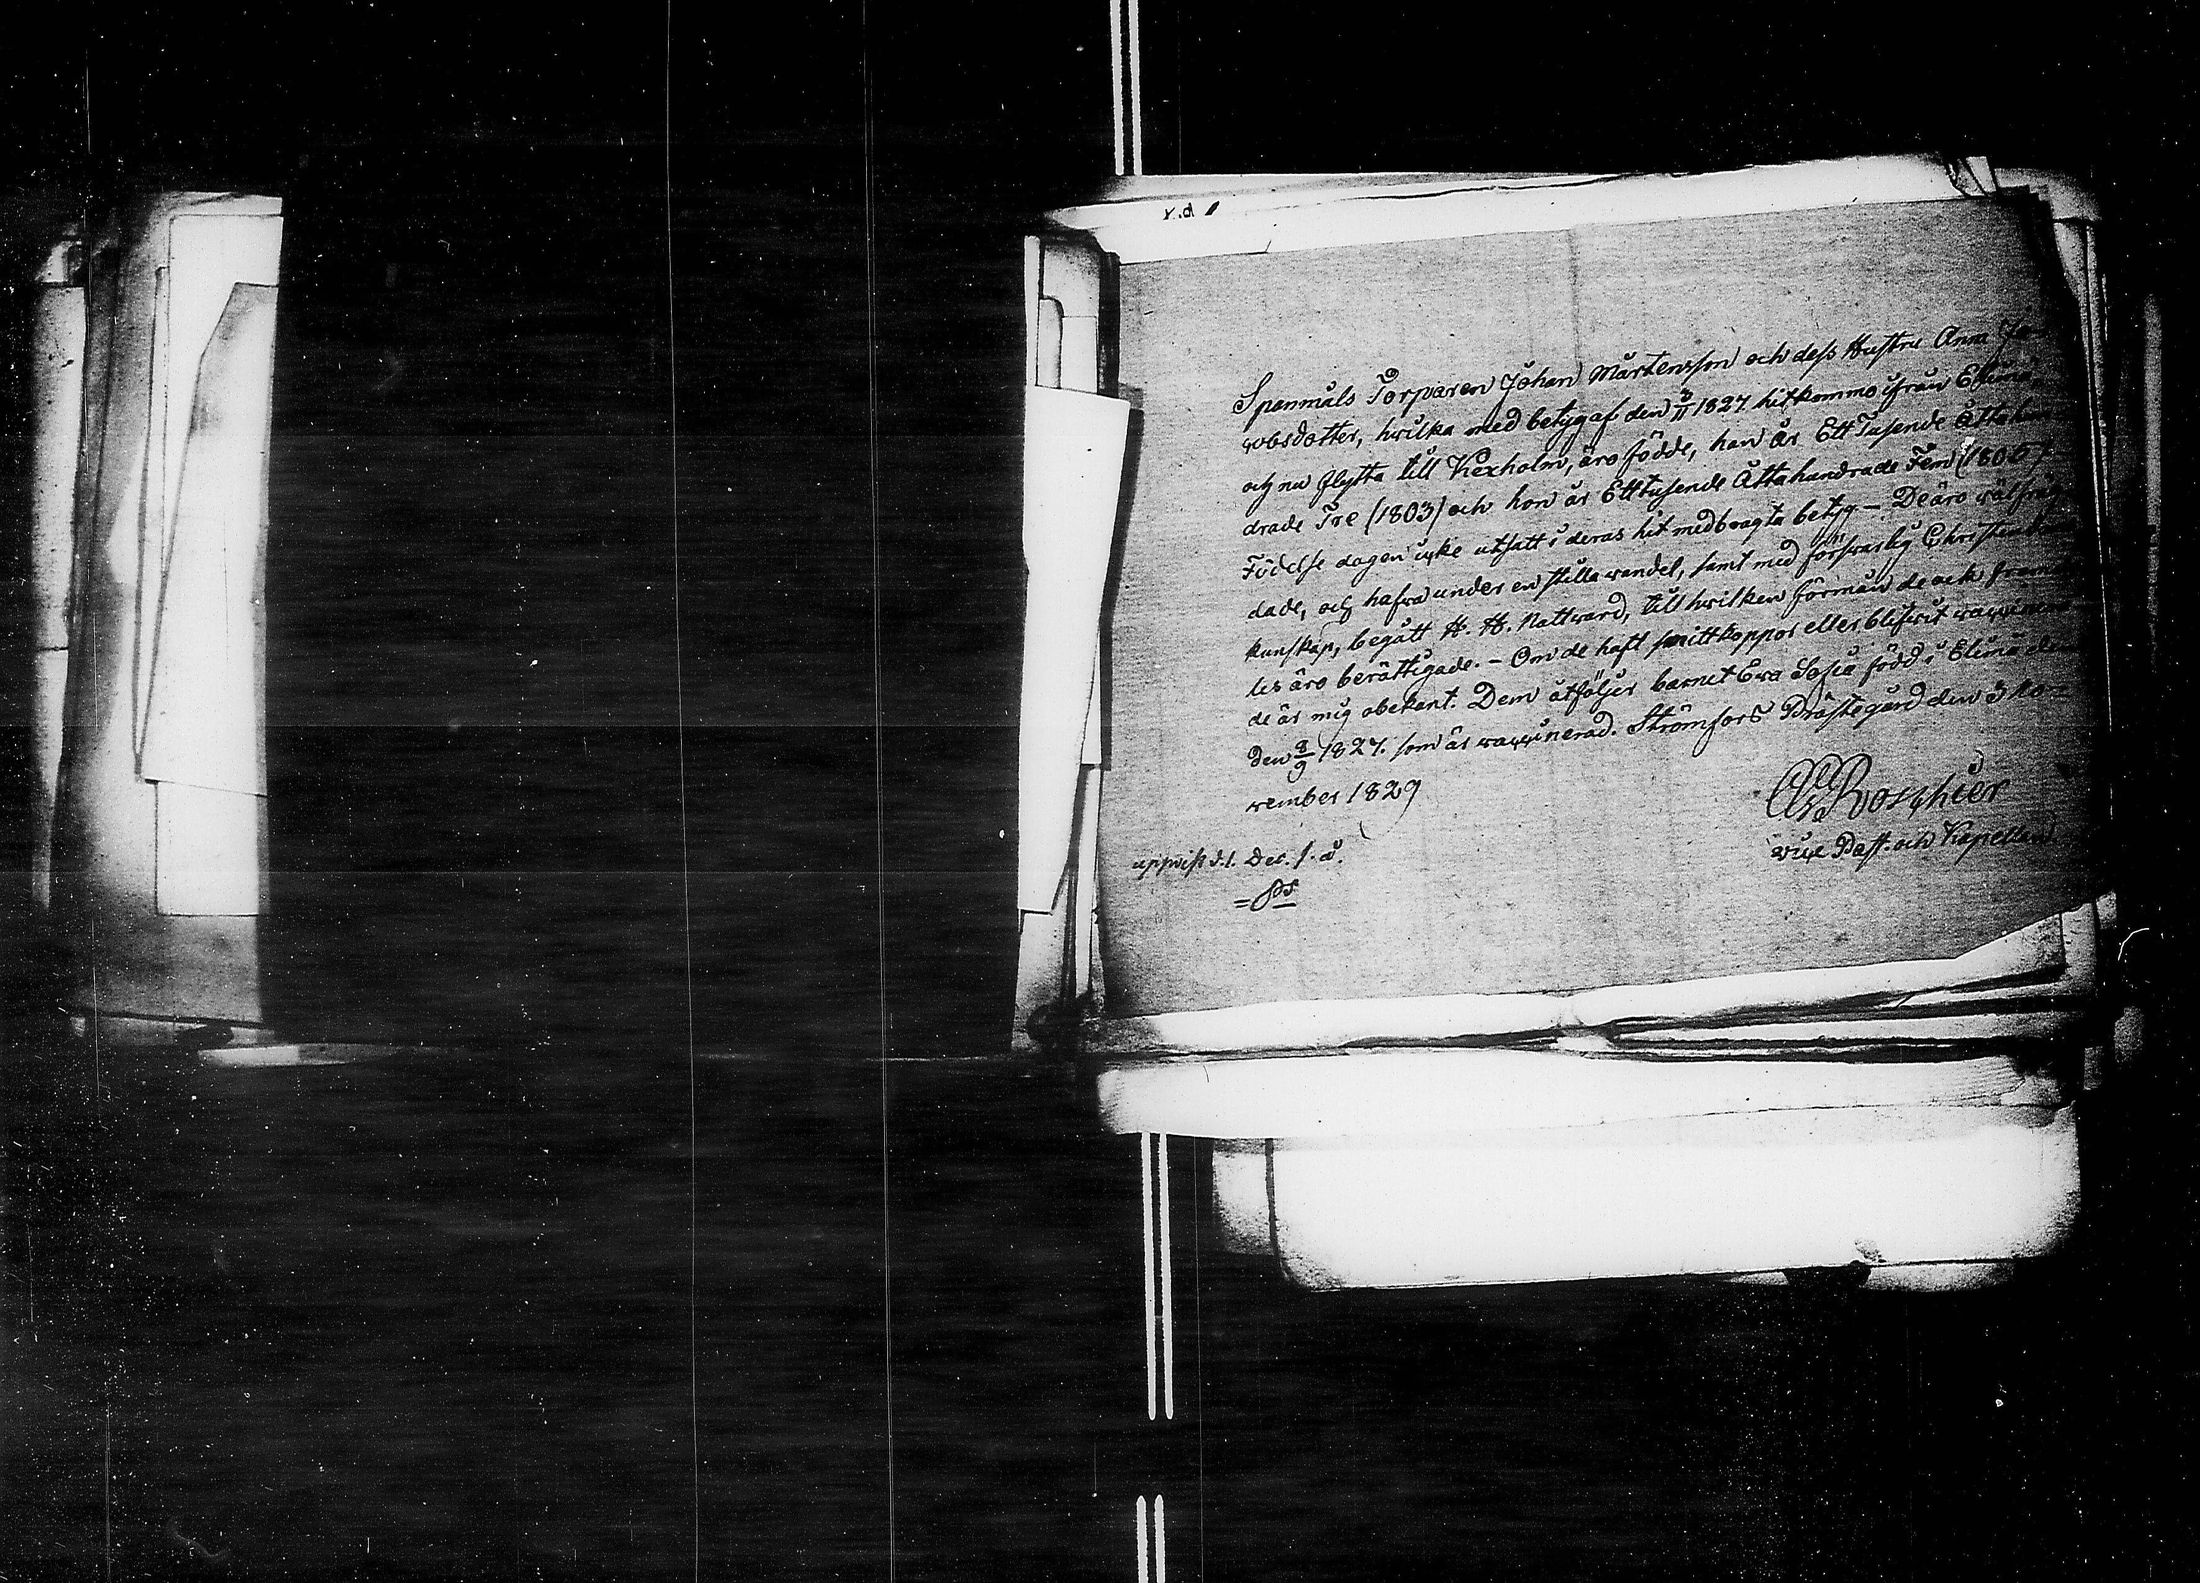 Spennåls Torparen Johan Mårtensson och dess Hustru Anna Ja-
cobsdotter, hwilka med betyg af den 8/11 1827 hitkommo ifrån Elimä
och nu flytta till Kexholm, äro födde, han år Ett Tusende Åttahun-
drade Tre (1803) och hon år Ett tusende Åttahundrade Fem (1805)
Födelse dagen icke utsatt i deras hit medbragta betyg. – De äro wälfräj-
dade, och hafwa under en stilla wandel, samt med förswarlig Christendoms
kunskap, begått H. H. Nattward, till hwilken förmån de ock fram-
les äro berättigade. – Om de haft smittkoppor eller blifwit waccinera-
de är mig obekant. Dem åtföljer barnet Ewa Sofia född i Elimä
den 8/9 1827. som är waccinerad. Strömfors Prästegård den 3 No-
wember 1829
Boscthier
vice Past. och Kapellan
uppwist d. 1. Dec. s. å.